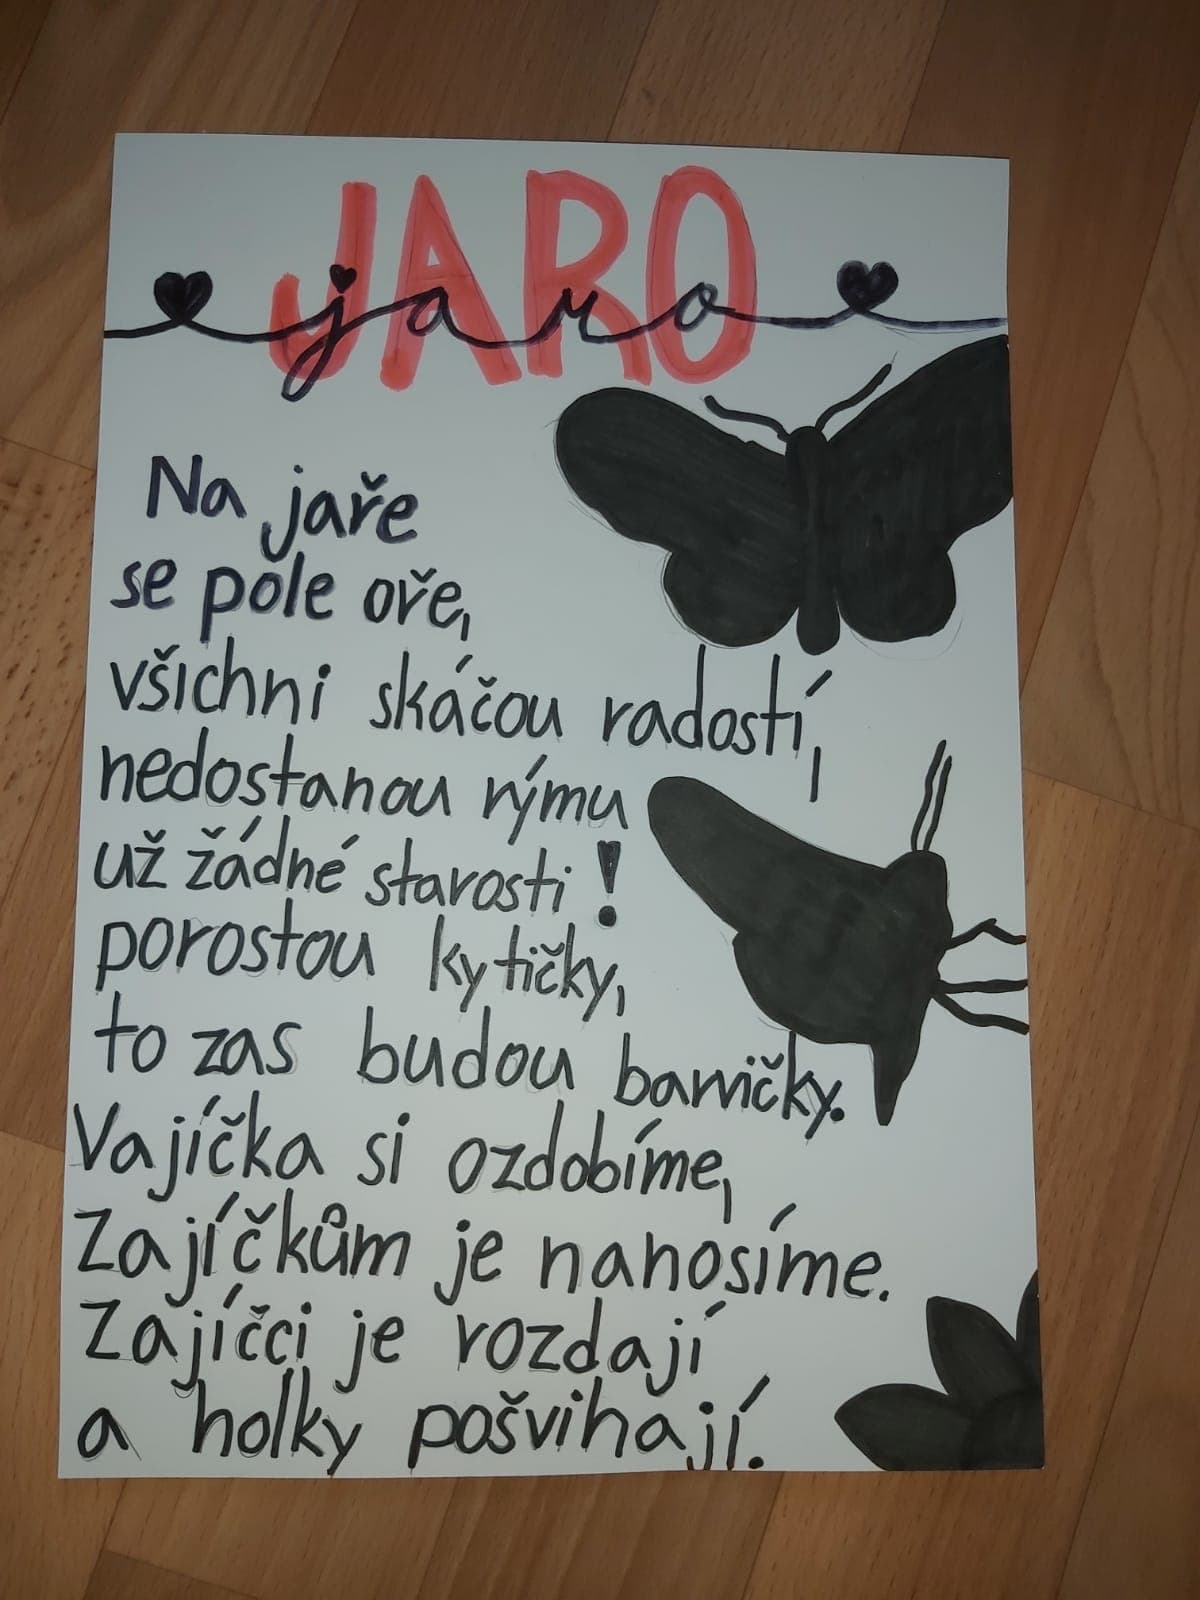 JARO
jaro
Na jaře
se pole oře,
všichni skáčou radostí,
nedostanou rýmu
už žádné starosti!
porostou kytičky,
to zas budou barvičky.
Vajíčka si ozdobíme,
Zajíčkům je nanosíme.
Zajíčci je rozdají
a holky pošvihají.